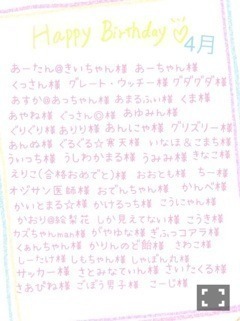 Happy Birthday♡
4月
あーたん@きいちゃん様 あーちゃん様
くっさん様 グレート・ウッチー様 グダグダ様
あすか@あっちゃん様 あまるふぃ様 くま様
あやね様 ぐっさん@様 あゆみん様
ぐりぐり様 ありり様 あんにゃ様 グリズリー様
あんぬ様 ぐるぐる☆寒天様 いなほ&こまち様
ういっち様 うしわかまる様 うみみ様 きなこ様
えりこ(合格おめでと)様 おおとも様 ちー様
オジサン医師様 おでんちゃん様 かんぺ様
かいとまる☆様 かけるっち様 こうにゃん様
かおり@絵梨花 しか見えてない様 こうき様
カズちゃんman様 がやゆな様 ぎふっコアラ様
くぁんちゃん様 かりんのど飴様 さわこ様
しーたけ様 しもちゃん様 しゃぼん丸様
サッカー様 さとみなていん様 さいたくる様
さあぴね様 ごぼう男子様 こーじ様